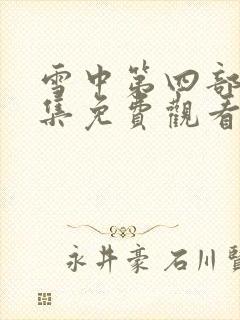 雪中第四部
集免費觀看
永井豪 石川賢